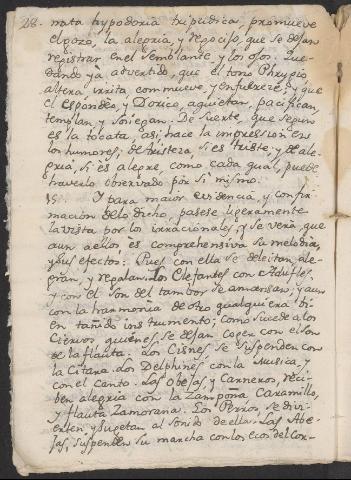 28.
mata hypodoria tripudica, promueve
el gozo, la alegria, y regocijo, que se dejan
registrar en el semblante, y los ojos. Que-
dando ya advertido, que el tono Phrygio,
altera irrita, commueve, y enfurece: y que
el espondeo, y Dorico, aquietan, pacifican,
templan y sosiegan. De suerte, que segun
es la tocata, asi hace la impression en
los humores; de tristeza, si es triste, y de ale-
gria, si es alegre, como cada qual, puede
haverlo observado por si mismo.
Y para maior evidencia, y confir-
macion de lo dicho, pasese ligeramente
la vista por los irracionales, y se verà, que
aun a ellos, es comprehensiva su melodia,
y sus efectos. Pues con ella se deleitan, ale-
gran, y regalan. Los Elefantes con Adufles,
y con el son del tambor se amansan; y aun
con la harmonia de otro qualquiera bi-
en tañido instrumento; como sucede a los
Ciervos, quienes se dejan coger con el son
de la flauta. Los Cisnes se suspenden con
la Citara. Los Delphines con la Musica, y
con el Canto. Las obejas, y Carneros, reci-
ben alegria con la Zampoña, Caramillo,
y flauta Zamorana. Los Perros, se divi-
erten, y sugetan al sonido de ella. Las Abe-
jas, suspenden su marcha con los ecos del Cor-